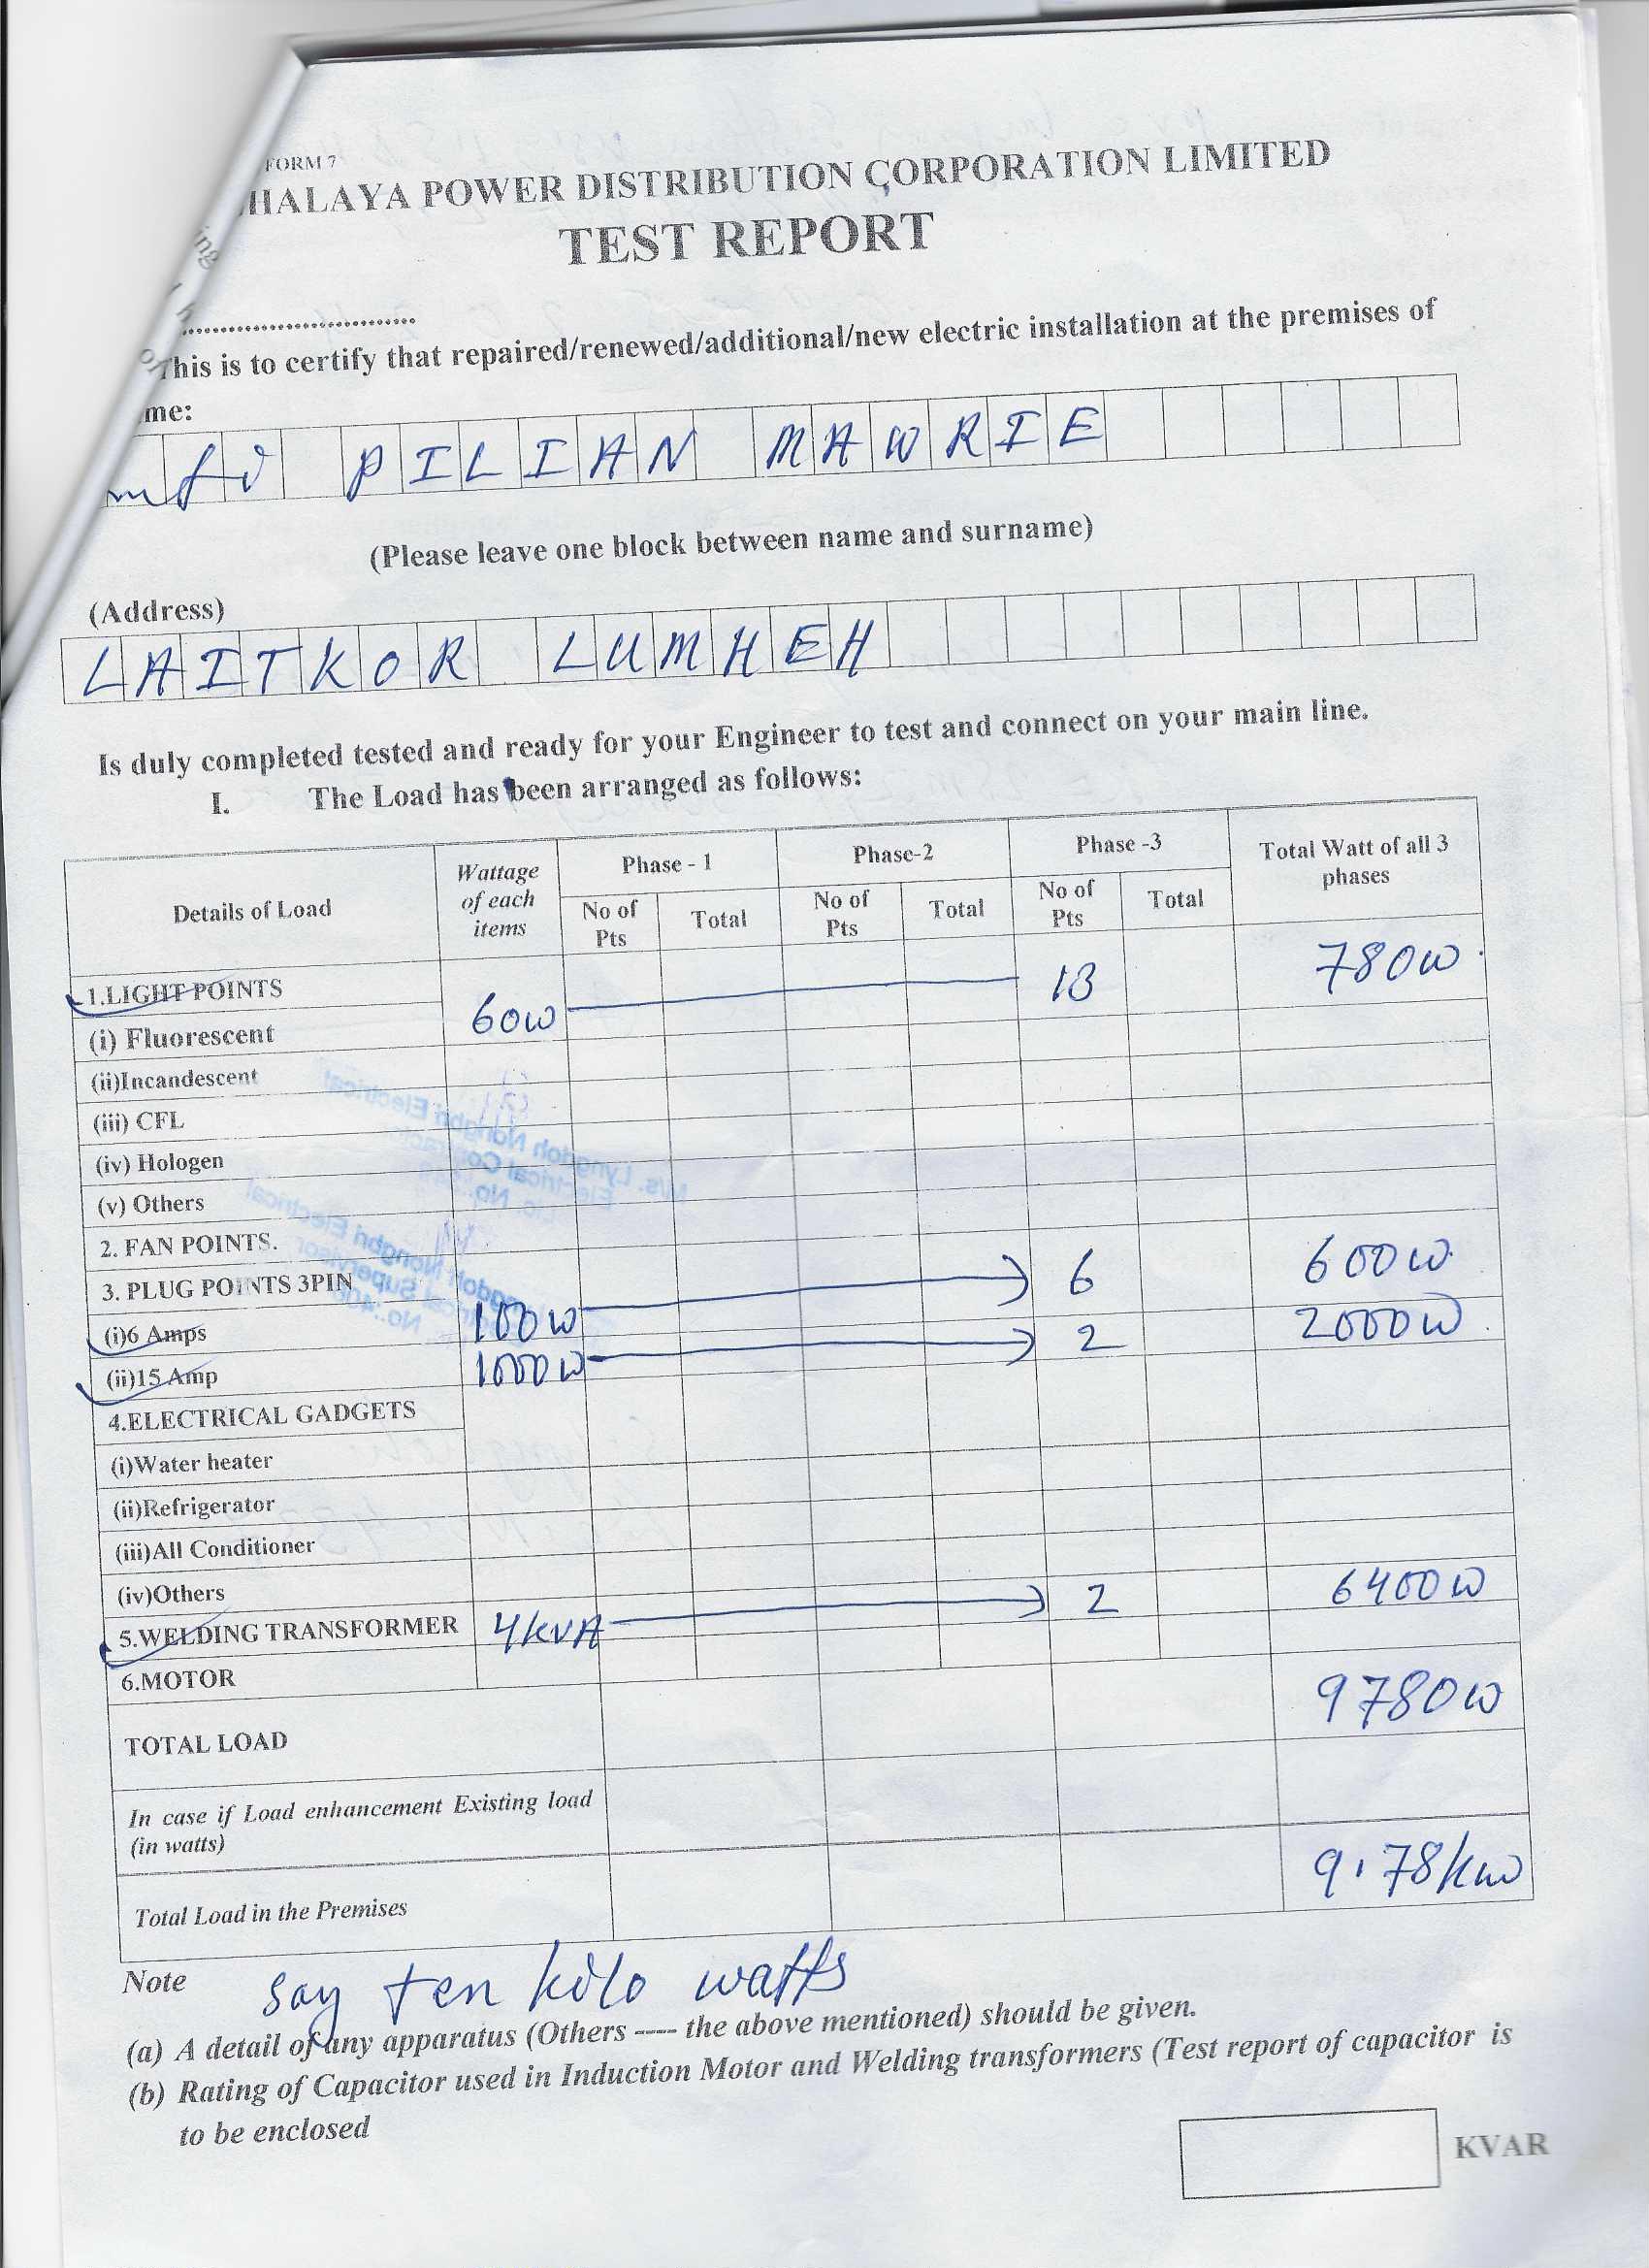 FORM 7
HALAYA POWER DISTRIBUTION CORPORATION LIMITED
TEST REPORT
This is to certify that repaired/renewed/additional/new electric installation at the premises of
me:
PILIAN MAWRIE
(Please leave one block between name and surname)
(Address)
LAITKOR LUMHEH
Is duly completed tested and ready for your Engineer to test and connect on your main line.
I. The Load has been arranged as follows:
Details of Load Wattage of each items Phase - 1 Phase-2 Phase -3 Total Watt of all 3 phases
No of Pts Total No of Pts Total No of Pts Total
1.LIGHT POINTS 13 780W
(i) Fluorescent 60W
(ii)Incandescent
(iii) CFL
(iv) Hologen
(v) Others
2. FAN POINTS.
3. PLUG POINTS 3PIN 6 600W
(i)6 Amps 100W 2 2000W
(ii)15 Amp 1000W
4.ELECTRICAL GADGETS
(i)Water heater
(ii)Refrigerator
(iii)All Conditioner
(iv)Others
5.WELDING TRANSFORMER 4KVA 2 6400W
6.MOTOR
TOTAL LOAD 9780W
In case if Load enhancement Existing load
(in watts)
Total Load in the Premises 9.78KW
Note say ten kilo watts
(a) A detail of any apparatus (Others ---- the above mentioned) should be given.
(b) Rating of Capacitor used in Induction Motor and Welding transformers (Test report of capacitor is
to be enclosed
KVAR